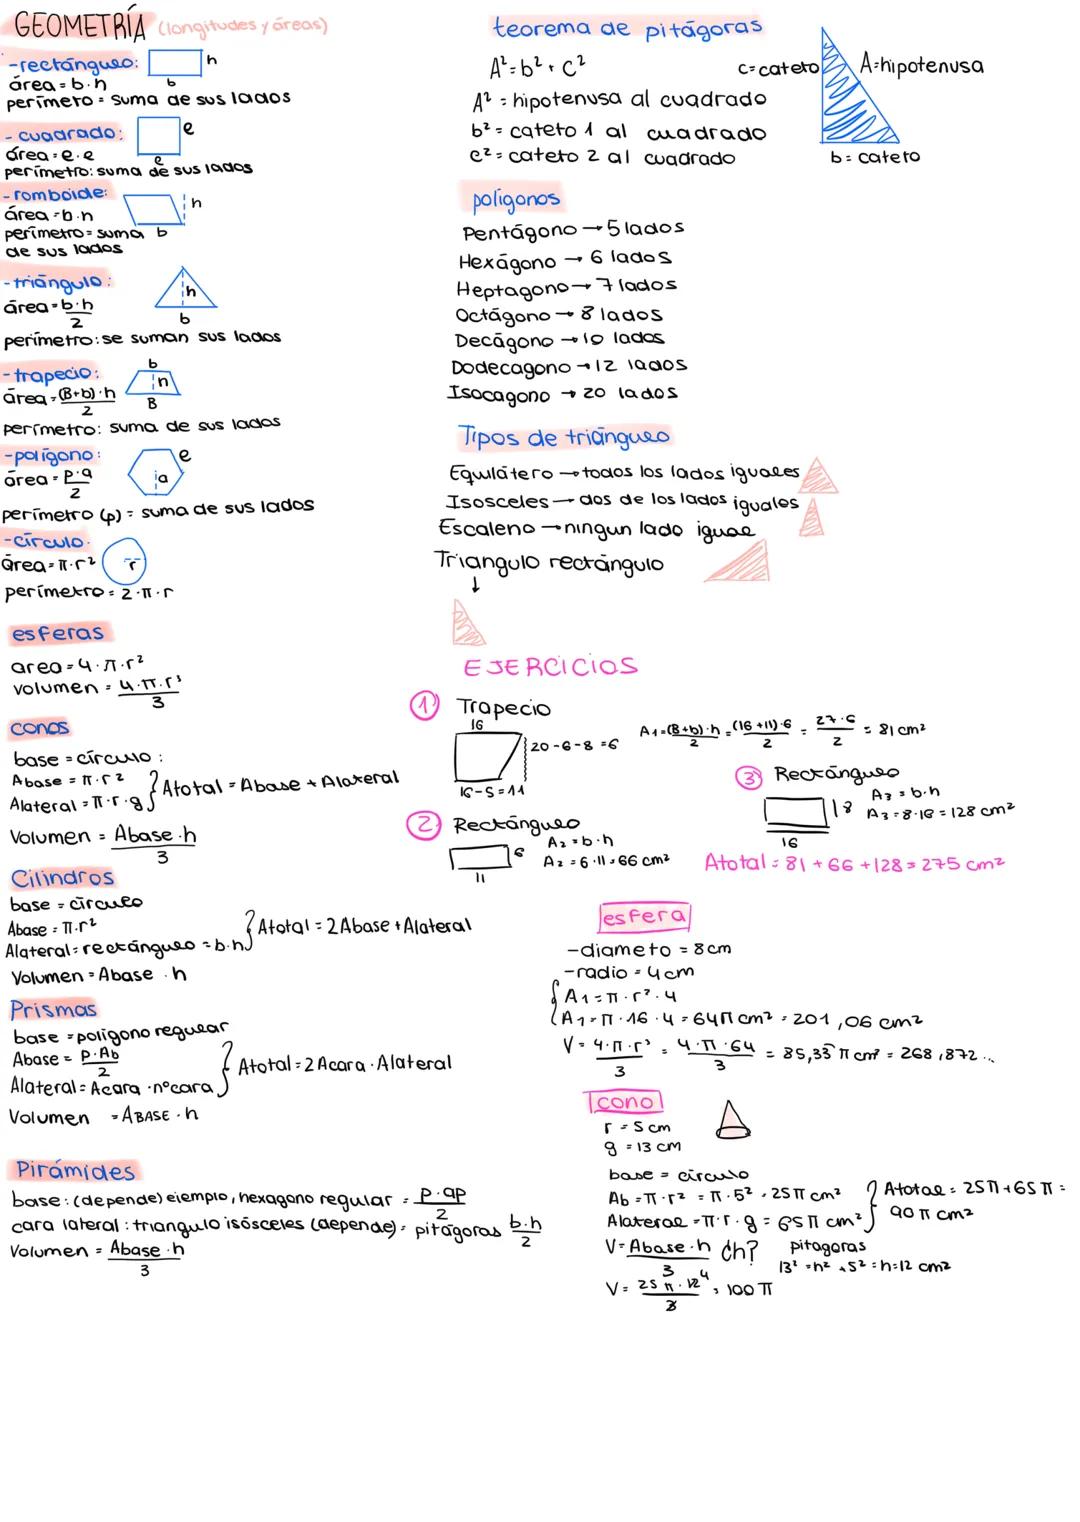 GEOMETRÍA (longitudes y áreas)
-rectángulo:
h
b
área = b·h
perímero = suma de sus lados
- cuadrado:
e
e
área = e·e
perímetro: suma de sus lados
-romboide:
h
área = b·h
perímetro = suma
b
de sus lados
-triángulo:
h
b
área = b·h
2
perímetro: se suman sus lados
-trapecio:
b
h
B
área = (B+b)·h
2
perímetro: suma de sus lados
-polígono:
e
a
área = p·a
2
perímetro (p) = suma de sus lados
-círculo.
r
área = π·r²
perímetro = 2·π·r
esferas
area = 4·π·r²
volumen = 4·π·r³
3
conos
base = círculo:
Abase = π·r²
Alateral = π·r·g
Atotal = Abase + Alateral
Volumen = Abase·h
3
Cilindros
base = círculo
Abase = π·r²
Alateral = rectángulo = b·h
Atotal = 2Abase + Alateral
Volumen = Abase · h
Prismas
base = polígono regular
Abase = P·Ab
2
Alateral = Acara · nºcara
Atotal = 2 Acara · Alateral
Volumen = ABASE · h
Pirámides
base: (depende) ejemplo, hexagono regular = p·ap
2
cara lateral: triangulo isósceles (depende) = pitágoras b·h
2
Volumen = Abase·h
3
teorema de pitágoras
A² = b² + c²
A² = hipotenusa al cuadrado
b² = cateto 1 al cuadrado
c² = cateto 2 al cuadrado
c = cateto
A = hipotenusa
b = cateto
polígonos
Pentágono → 5 lados
Hexágono → 6 lados
Heptagono → 7 lados
Octágono → 8 lados
Decágono → 10 lados
Dodecagono → 12 lados
Isocagono → 20 lados
Tipos de triángulo
Equilátero → todos los lados iguales
Isosceles → dos de los lados iguales
Escaleno → ningun lado igual
Triangulo rectángulo
↓
EJERCICIOS
1 Trapecio
16
20-6-8 = 6
16-5 = 11
A1 = (B+b)·h = (16+11)·6 = 27·6 = 81 cm²
2 2 2
2 Rectángulo
6
11
A2 = b·h
A2 = 6·11 = 66 cm²
3 Rectángulo
8
16
A3 = b·h
A3 = 8·16 = 128 cm²
Atotal = 81 + 66 + 128 = 275 cm²
esfera
-diameto = 8 cm
-radio = 4 cm
A1 = π·r²·4
A1 = π·16·4 = 64π cm² = 201,06 cm²
V = 4·π·r³ = 4·π·64 = 85,33 π cm³ = 268,872...
3 3
cono
r = 5 cm
g = 13 cm
base = círculo
Ab = π·r² = π·5² = 25π cm²
Alateral = π·r·g = 65π cm²
Atotal = 25π + 65π =
90π cm²
V = Abase·h ¿h? pitagoras
3
13² = h² + 5² = h = 12 cm²
V = 25π·12 4 = 100π
3